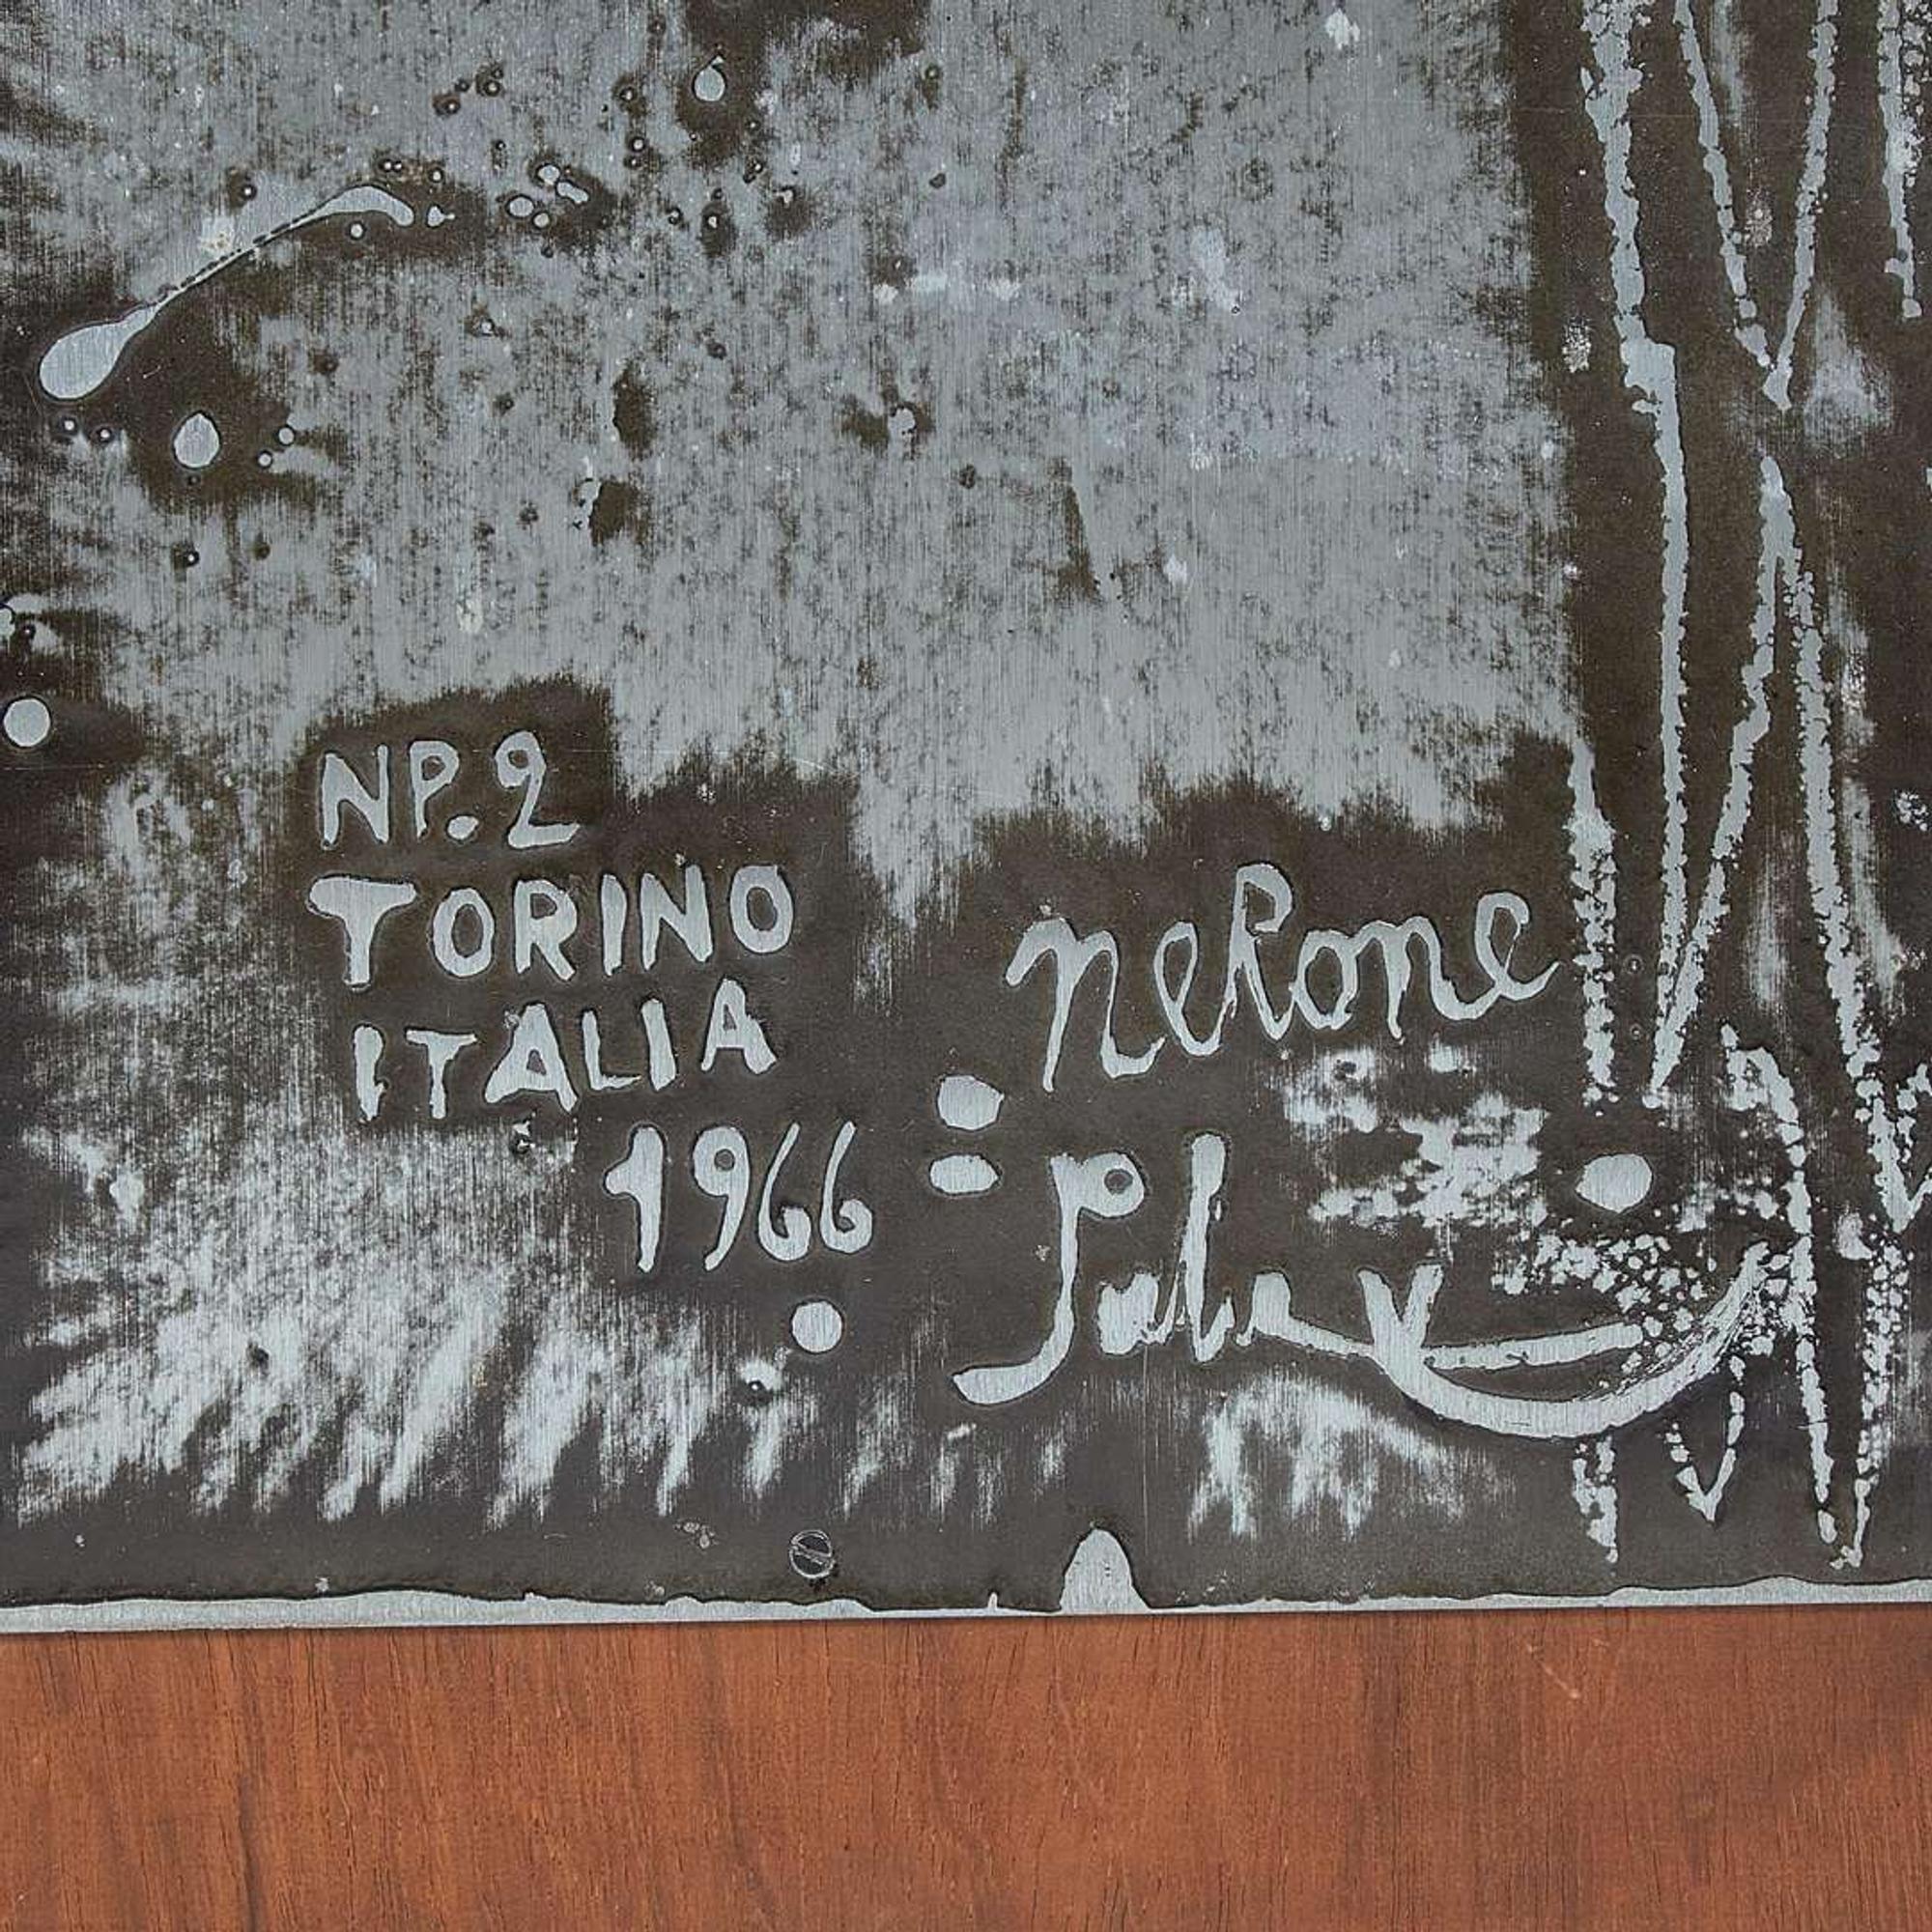 NP.2
TORINO
ITALIA
1966
neRone